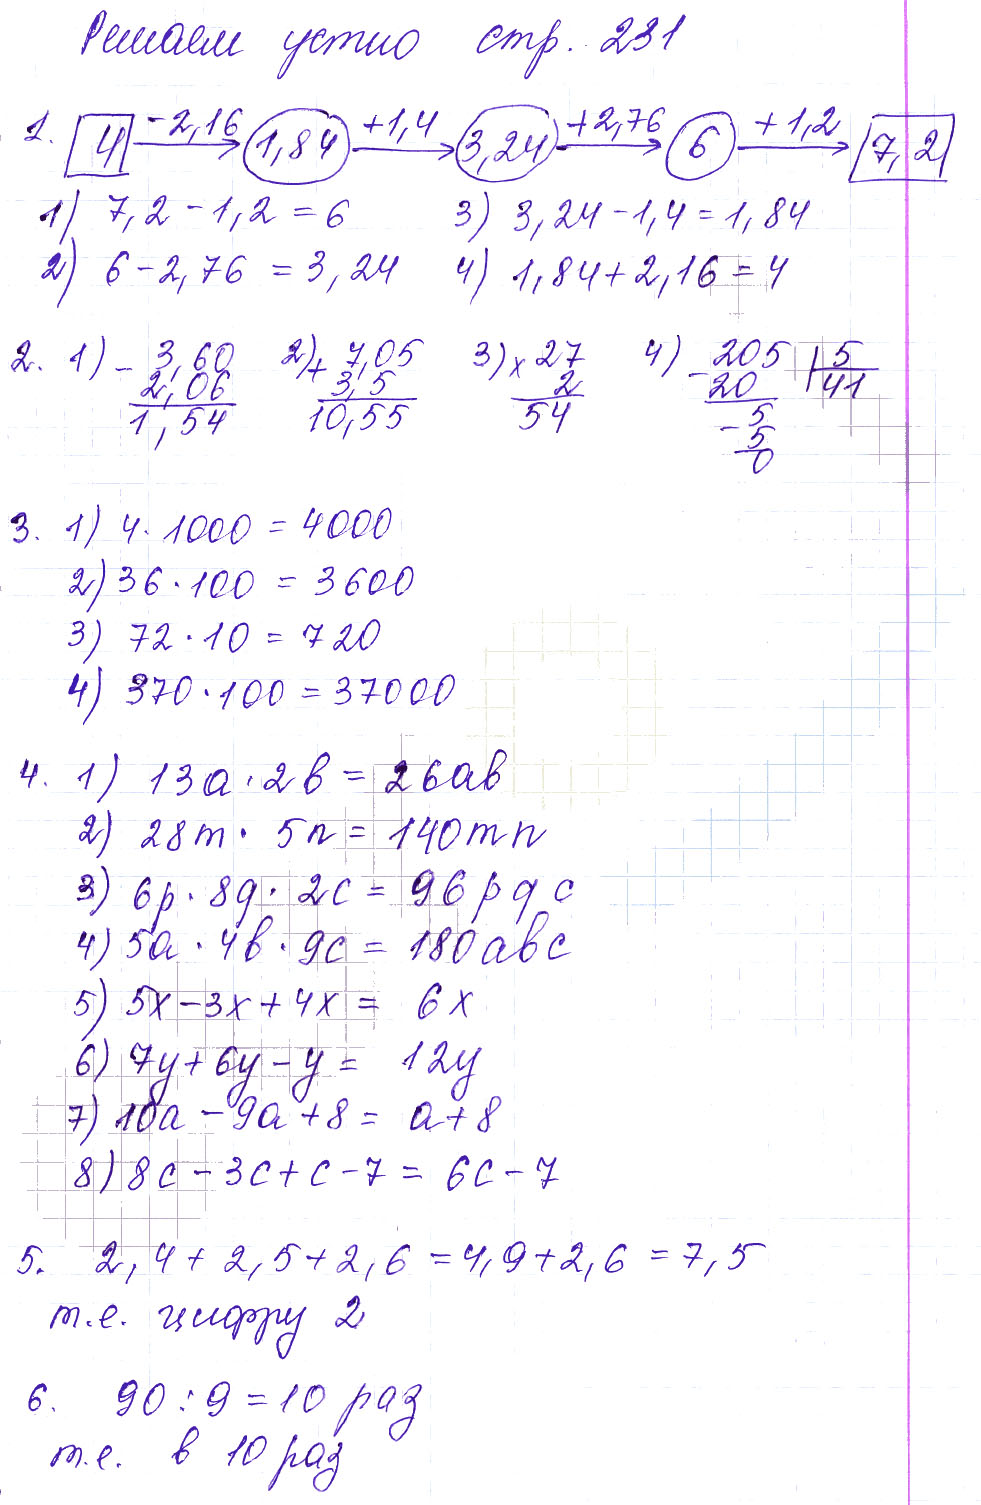 Решаем устно стр. 231
1. 4 -2,16 1,84 +1,4 3,24 +2,76 6 +1,2 7,2
1) 7,2 - 1,2 = 6 3) 3,24 - 1,4 = 1,84
2) 6 - 2,76 = 3,24 4) 1,84 + 2,16 = 4
2. 1) - 3,60 2) + 7,05 3) x 27 4) - 205 | 5
2,06 3,5 2 20 41
1,54 10,55 54 - 5
5
0
3. 1) 4 · 1000 = 4000
2) 36 · 100 = 3600
3) 72 · 10 = 720
4) 370 · 100 = 37000
4. 1) 13a · 2b = 26ab
2) 28m · 5n = 140mn
3) 6p · 8q · 2c = 96pqc
4) 5a · 4b · 9c = 180abc
5) 5x - 3x + 4x = 6x
6) 7y + 6y - y = 12y
7) 10a - 9a + 8 = a + 8
8) 8c - 3c + c - 7 = 6c - 7
5. 2,4 + 2,5 + 2,6 = 4,9 + 2,6 = 7,5
т.е. цифру 2
6. 90 : 9 = 10 раз
т.е. в 10 раз